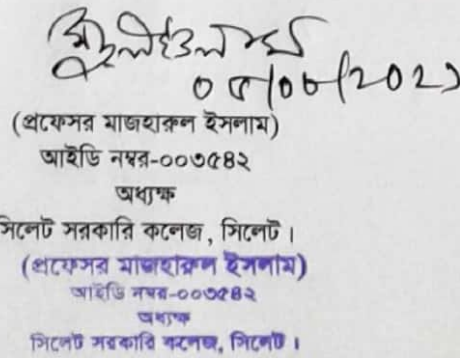 (প্রফেসর মাজহারুল ইসলাম)
আইডি নম্বর-০০৩৫৪২
অধ্যক্ষ
সিলেট সরকারি কলেজ, সিলেট।
(প্রফেসর মাজহারুল ইসলাম)
আইডি নম্বর-০০৩৫৪২
অধ্যক্ষ
সিলেট সরকারি কলেজ, সিলেট।